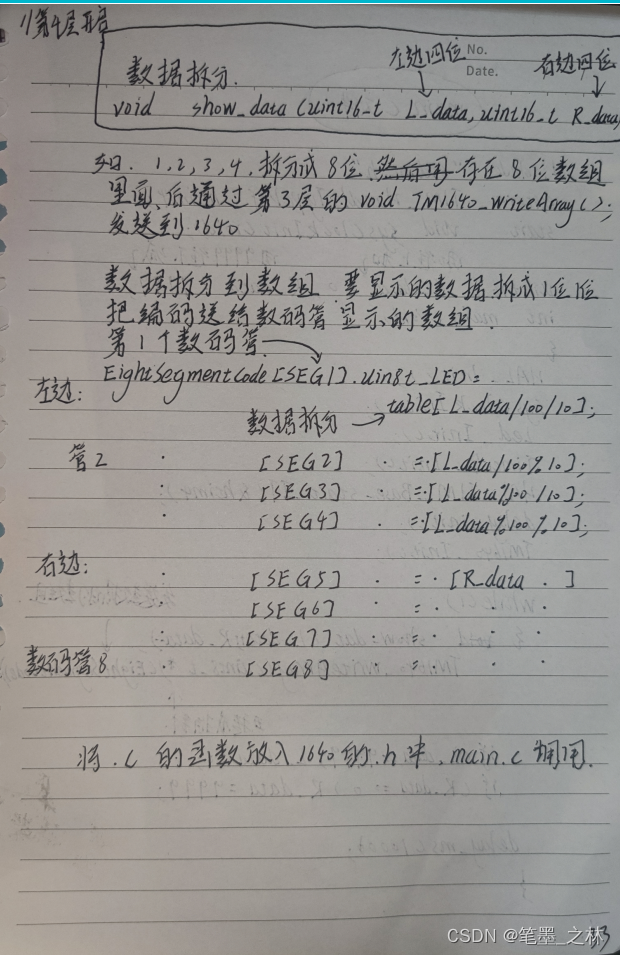 //第4层开启
左边四位 No. 右边四位
Date.
数据拆分.
void show_data (uint16_t L_data, uint16_t R_data,
如. 1, 2, 3, 4, 拆分成8位 然后用 存在8位数组
里面、后通过第3层的 void TM1640_WriteArray();
发送到1640
数据拆分到数组 要显示的数据拆成1位1位
把编码送给数码管显示的数组.
第1个数码管
左边: EightSegmentCode[SEG1].uin8t_LED =
数据拆分 table[L_data/100/10];
管2 . [SEG2] . =·[L_data/100%10];
: [SEG3] . =·[L_data%100/10];
· [SEG4] . =·[L_data%100%10];
右边: : [SEG5] . =· [R_data . ]
: [SEG6] · =· · ·
: [SEG7] · =· · ·
数码管8 · [SEG8] · =· · ·
将.c的函数放入1640的.h中, main.c调用.
CSDN @笔墨_之林